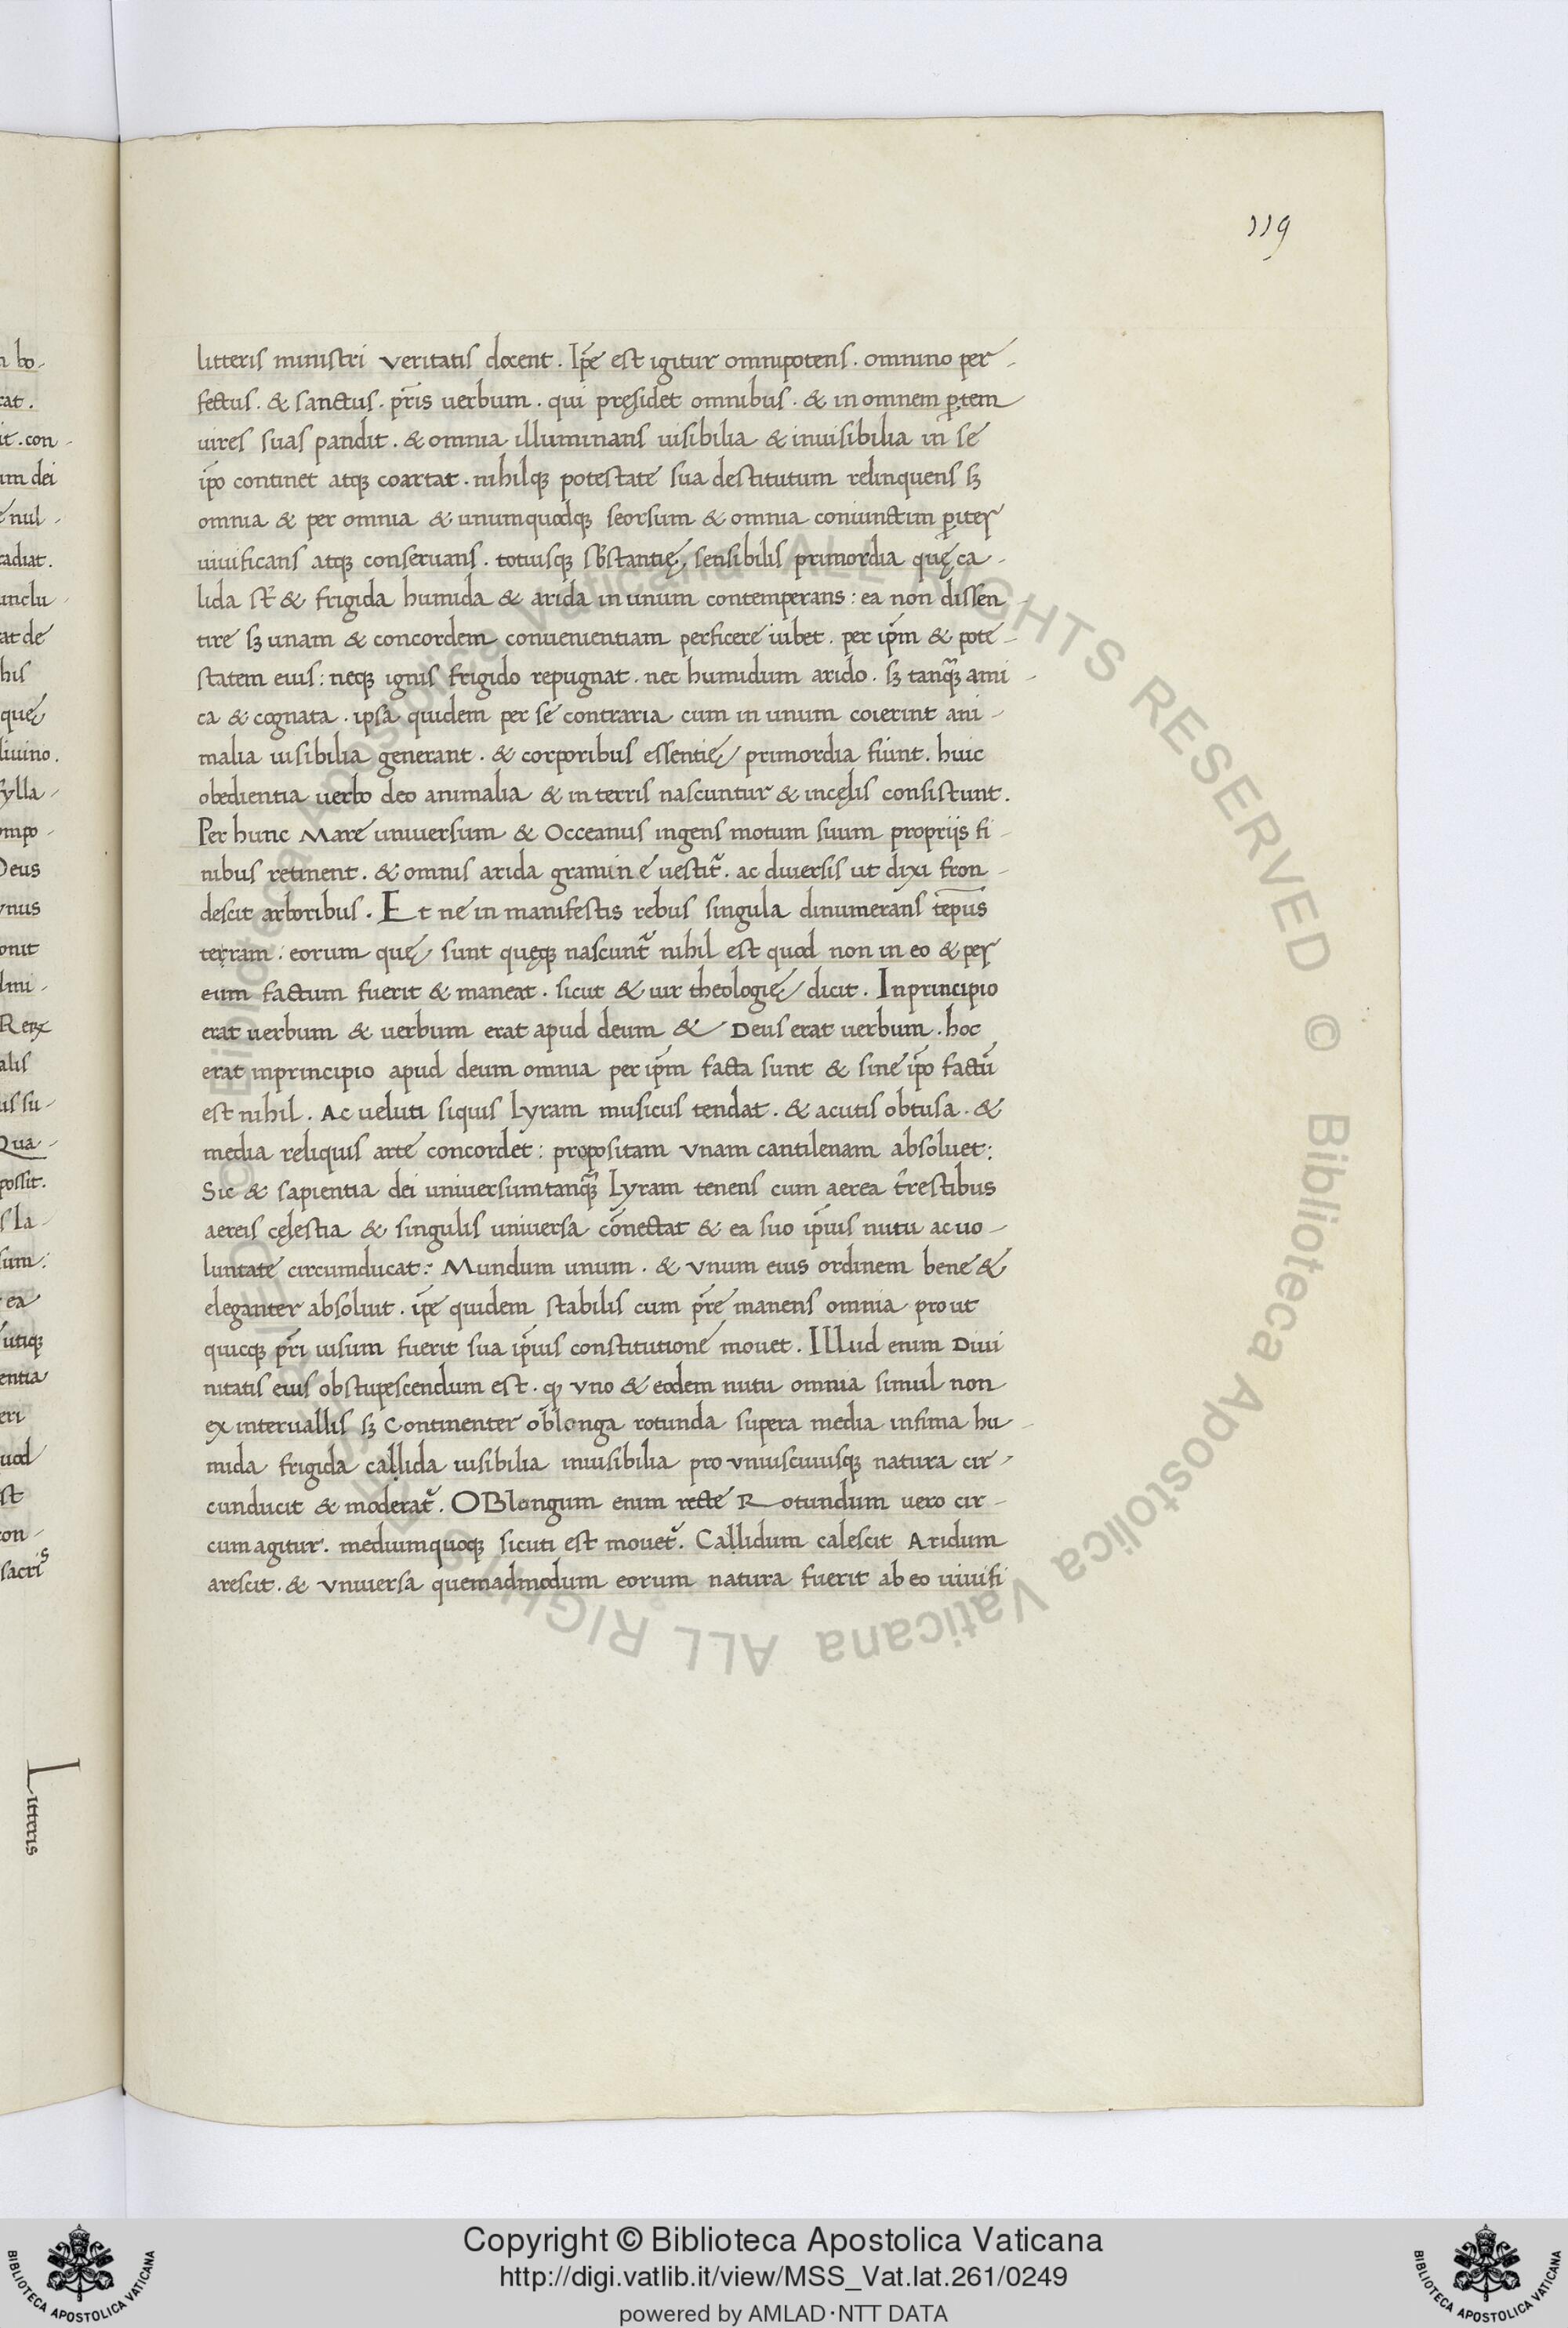 119
litteris ministri veritatis docent. Ip̄e est igitur omnipotens. omnino per-
fectus. & sanctus. pr̄is uerbum. qui pręsidet omnibus. & in omnem ꝑtem
uires suas pandit. & omnia illuminans uisibilia & inuisibilia in se
ip̄o continet atqꝫ coartat. nihilqꝫ potestate sua destitutum relinquens sꝫ
omnia & per omnia & unumquodqꝫ seorsum & omnia coniunctim ꝑiter
uiuificans atqꝫ conseruans. totiusqꝫ sb̄stantię sensibilis primordia quę ca-
lida st̄ & frigida humida & arida in unum contemperans: ea non dissen-
tire sꝫ unam & concordem conuenientiam perficere iubet. per ip̄m & pote-
statem eius: neqꝫ ignis frigido repugnat. nec humidum arido. sꝫ tanqꝫ̄ ami-
ca & cognata. ipsa quidem per se contraria cum in unum coierint ani-
malia uisibilia generant. & corporibus essentię primordia fiunt. huic
obedientia uerbo deo animalia & in terris nascuntur & incęlis consistunt.
Per hunc Mare uniuersum & Occeanus ingens motum suum proprijs fi-
nibus retinent. & omnis arida gramine uestit᷑. ac diuersis ut dixi fron-
descit arboribus. Et ne in manifestis rebus singula dinumerans tēpus
terram: eorum quę sunt quęqꝫ nascunt᷑ nihil est quod non in eo & per
eum factum fuerit & maneat. sicut & uir theologię dicit. Inprincipio
erat uerbum & uerbum erat apud deum & Deus erat uerbum. hoc
erat inprincipio apud deum omnia per ip̄m facta sunt & sine ip̄o factū
est nihil. Ac ueluti siquis Lyram musicus tendat. & acutis obtusa. &
media reliquis arte concordet: propositam vnam cantilenam absoluet:
Sic & sapientia dei uniuersum tanqꝫ̄ Lyram tenens cum aerea t̄restibus
aereis cęlestia & singulis uniuersa cōnectat & ea suo ip̄ius nutu ac uo-
luntate circumducat: Mundum unum. & vnum eius ordinem bene &
eleganter absoluit. ip̄e quidem stabilis cum pr̄e manens omnia prout
quicqꝫ pr̄i uisum fuerit sua ip̄ius constitutione mouet. Illud enim Diui
nitatis eius obstupescendum est. ꝙ vno & eodem nutu omnia simul non
ex interuallis sꝫ Continenter oblonga rotunda supera media infima hu-
mida frigida callida uisibilia inuisibilia pro vniuscuiusqꝫ natura cir-
cunducit & moderat᷑. OBlongum enim recte Rotundum uero cir-
cumagitur. mediumquoqꝫ sicuti est mouet᷑. Callidum calescit Aridum
arescit. & vniuersa quemadmodum eorum natura fuerit ab eo uiuifi
Litteris
© Biblioteca Apostolica Vaticana ALL RIGHTS RESERVED
© Biblioteca Apostolica Vaticana ALL RIGHTS RESERVED
Copyright © Biblioteca Apostolica Vaticana
http://digi.vatlib.it/view/MSS_Vat.lat.261/0249
powered by AMLAD·NTT DATA
BIBLIOTECA APOSTOLICA VATICANA
BIBLIOTECA APOSTOLICA VATICANA